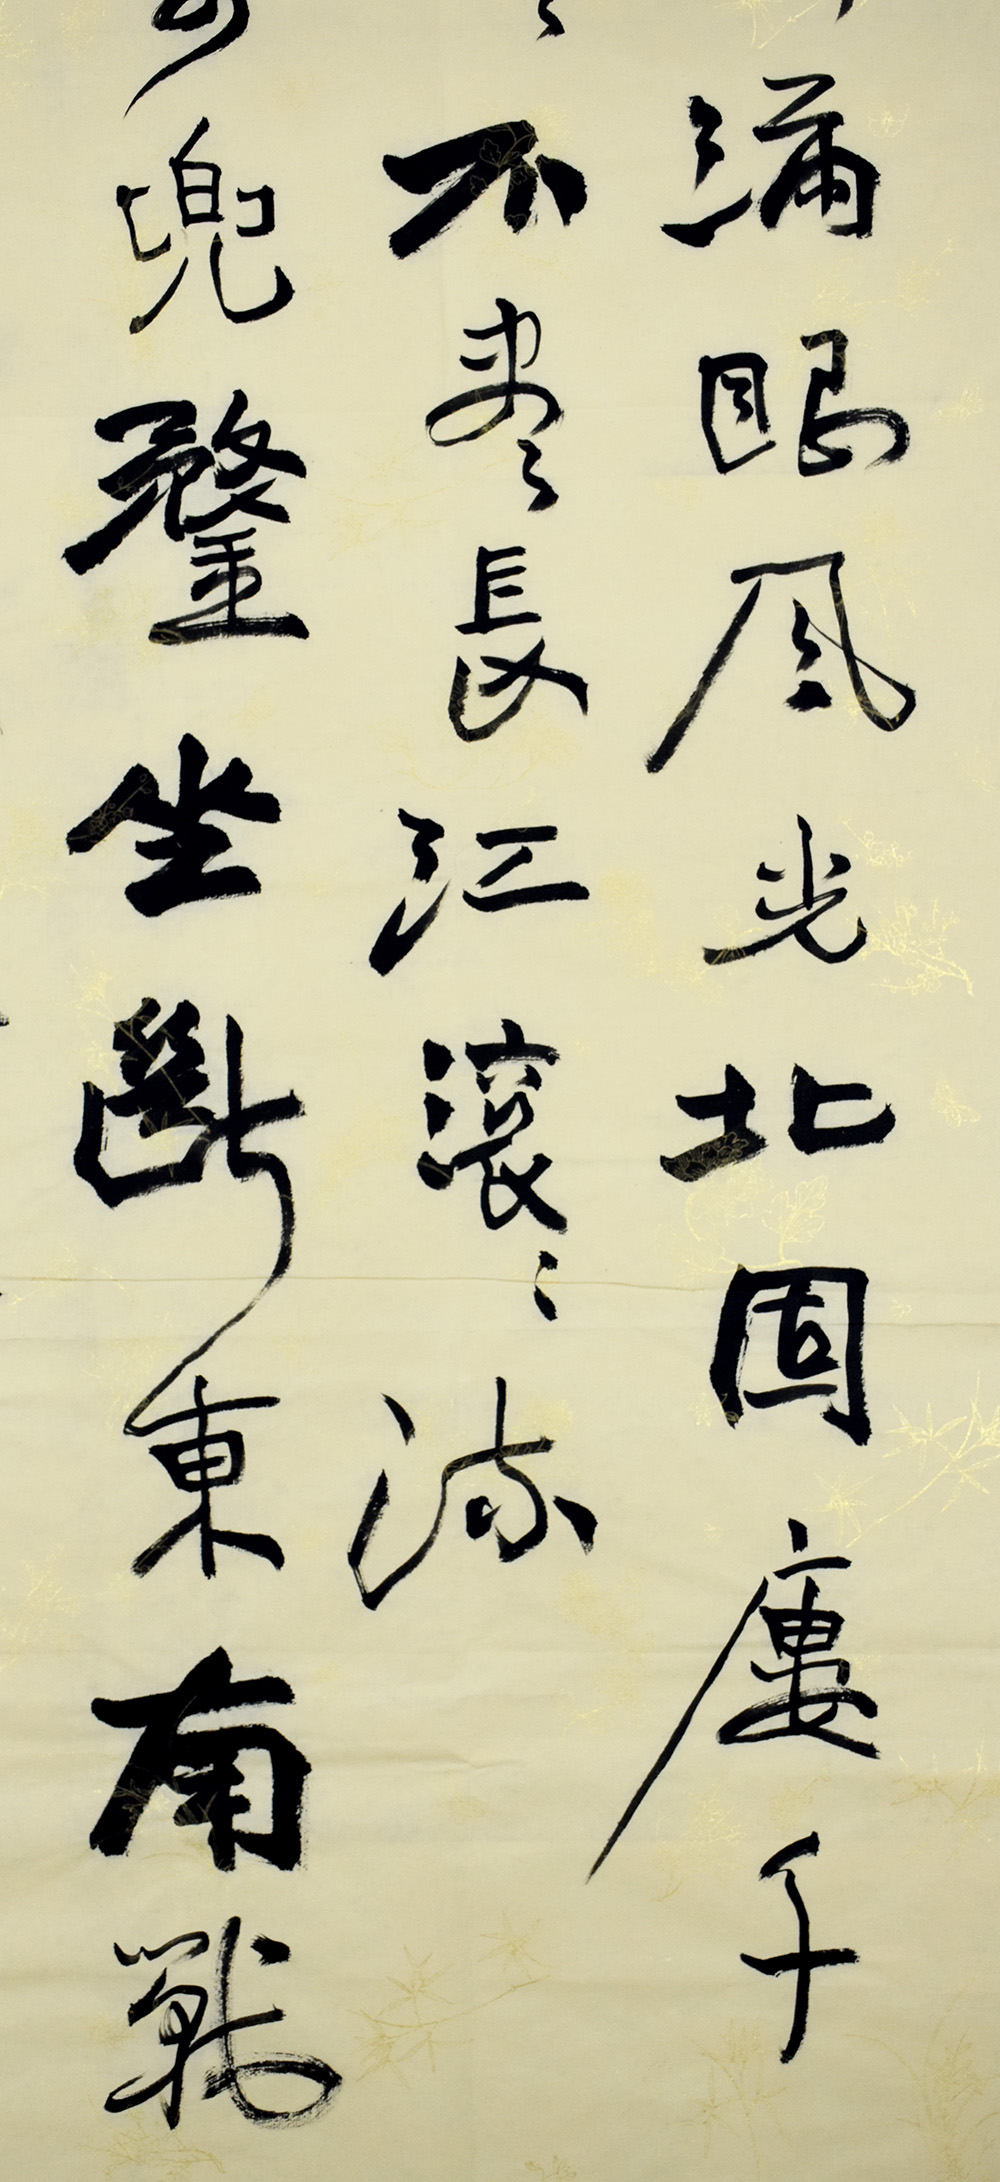 滿眼風光北固廔千
不盡長江滾〻流
兜鍪坐斷東南戰